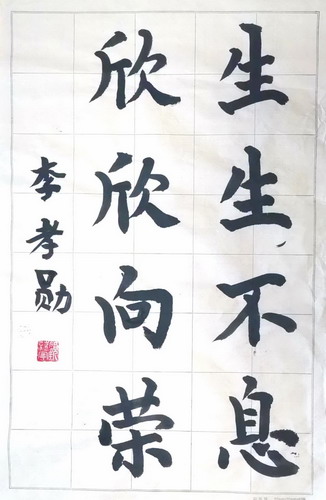 生生不息
欣欣向荣
李孝勋